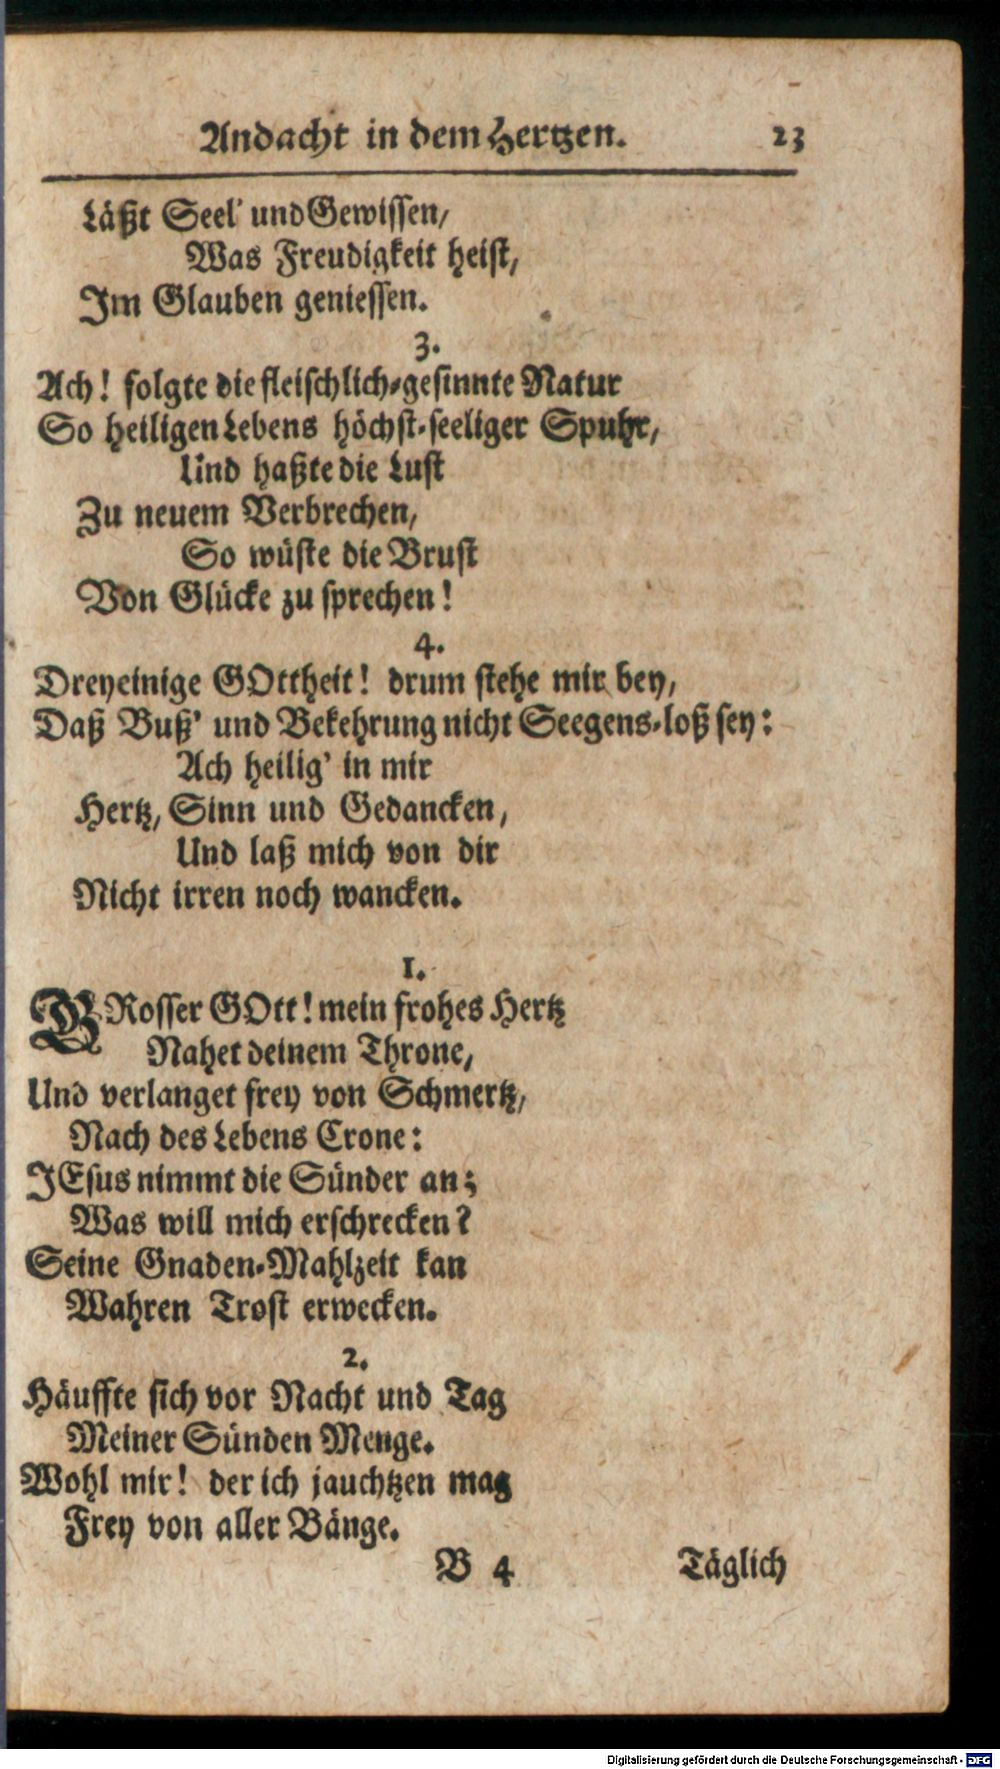 Andacht in dem Hertzen. 23
Läßt Seel' und Gewissen/
Was Freudigkeit heist,
Im Glauben geniessen.
3.
Ach! folgte die fleischlich-gesinnte Natur
So heiligen Lebens höchst-seeliger Spuhr,
Und haßte die Lust
Zu neuem Verbrechen,
So wüste die Brust
Von Glücke zu sprechen!
4.
Dreyeinige GOttheit! drum stehe mir bey,
Daß Buß' und Bekehrung nicht Seegens-loß sey:
Ach heilig' in mir
Hertz, Sinn und Gedancken,
Und laß mich von dir
Nicht irren noch wancken.
1.
GRosser GOtt! mein frohes Hertz
Nahet deinem Throne,
Und verlanget frey von Schmertz,
Nach des Lebens Crone:
JEsus nimmt die Sünder an;
Was will mich erschrecken?
Seine Gnaden-Mahlzeit kan
Wahren Trost erwecken.
2.
Häuffte sich vor Nacht und Tag
Meiner Sünden Menge.
Wohl mir! der ich jauchtzen mag
Frey von aller Bänge.
B 4 Täglich
Digitalisierung gefördert durch die Deutsche Forschungsgemeinschaft - DFG